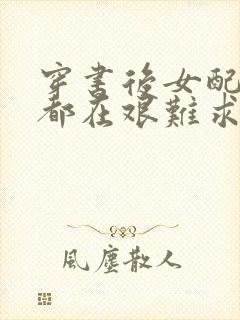 穿書後女配
都在艱難求
風塵散人